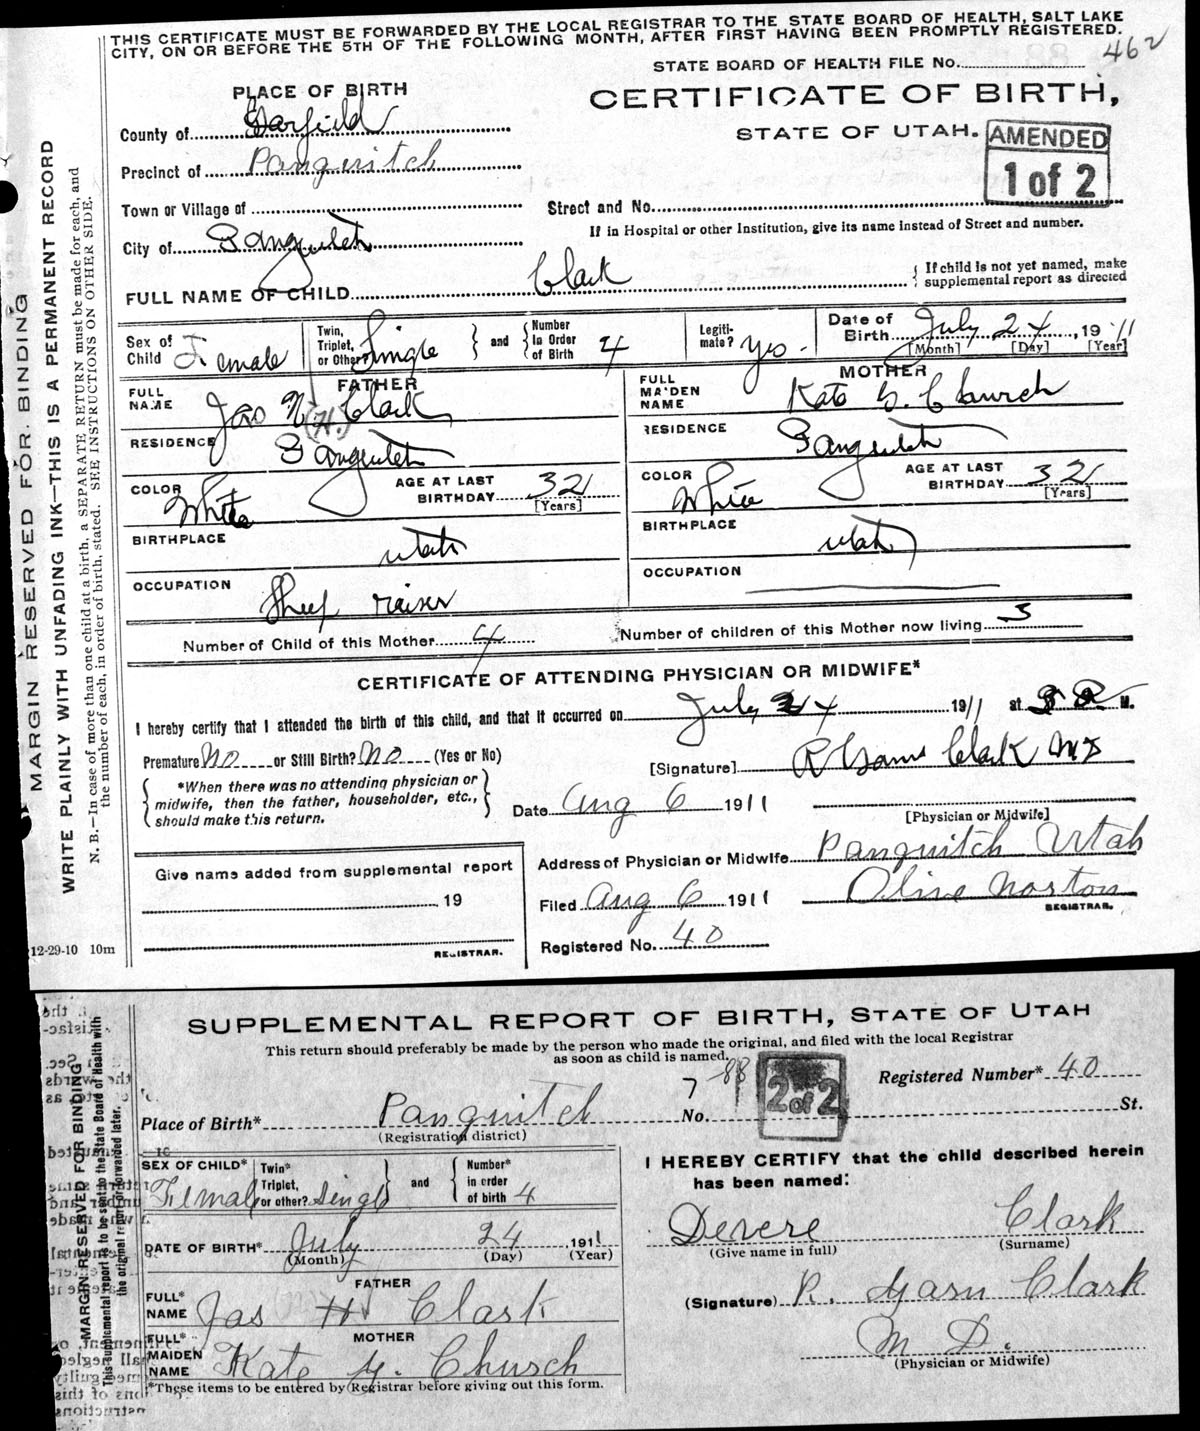 THIS CERTIFICATE MUST BE FORWARDED BY THE LOCAL REGISTRAR TO THE STATE BOARD OF HEALTH, SALT LAKE
CITY, ON OR BEFORE THE 5TH OF THE FOLLOWING MONTH, AFTER FIRST HAVING BEEN PROMPTLY REGISTERED.
462
STATE BOARD OF HEALTH FILE No.
PLACE OF BIRTH
CERTIFICATE OF BIRTH,
STATE OF UTAH.
AMENDED
1 of 2
County of Garfield
Precinct of Panguitch
Town or Village of
Street and No.
If in Hospital or other Institution, give its name instead of Street and number.
City of Panguitch
FULL NAME OF CHILD Clark
If child is not yet named, make
supplemental report as directed
Sex of Child Female
Twin, Triplet, or Other? Single
and
Number In Order of Birth 4
Legitimate? yes
Date of Birth July 24, 1911
[Month] [Day] [Year]
FATHER
FULL NAME Jas (H.) Clark
RESIDENCE Panguitch
COLOR White
AGE AT LAST BIRTHDAY 32
[Years]
BIRTHPLACE utah
OCCUPATION Sheep raiser
MOTHER
FULL MAIDEN NAME Kate Y. Church
RESIDENCE Panguitch
COLOR White
AGE AT LAST BIRTHDAY 32
[Years]
BIRTHPLACE utah
OCCUPATION
Number of Child of this Mother 4
Number of children of this Mother now living 3
CERTIFICATE OF ATTENDING PHYSICIAN OR MIDWIFE*
I hereby certify that I attended the birth of this child, and that it occurred on July 24 1911 at M.
Premature No or Still Birth? No (Yes or No)
[Signature] R Garn Clark MD
*When there was no attending physician or
midwife, then the father, householder, etc.,
should make this return.
Date Aug 6 1911
[Physician or Midwife]
Address of Physician or Midwife Panguitch Utah
Give name added from supplemental report
19
REGISTRAR.
Filed Aug 6 1911 Olive Norton
REGISTRAR.
Registered No. 40
12-29-10 10m
MARGIN RESERVED FOR BINDING
WRITE PLAINLY WITH UNFADING INK—THIS IS A PERMANENT RECORD
N. B.—In case of more than one child at a birth, a SEPARATE RETURN must be made for each, and
the number of each, in order of birth, stated. SEE INSTRUCTIONS ON OTHER SIDE.
SUPPLEMENTAL REPORT OF BIRTH, STATE OF UTAH
This return should preferably be made by the person who made the original, and filed with the local Registrar
as soon as child is named.
7-88
2 of 2
Registered Number* 40
Place of Birth* Panguitch No. St.
(Registration district)
SEX OF CHILD* Female
Twin* Triplet, or other? Single
and
Number* in order of birth 4
DATE OF BIRTH* July 24 1911
(Month) (Day) (Year)
FATHER
FULL* NAME Jas H Clark
MOTHER
FULL* MAIDEN NAME Kate Y. Church
*These items to be entered by Registrar before giving out this form.
I HEREBY CERTIFY that the child described herein
has been named:
Devere Clark
(Give name in full) (Surname)
(Signature) R. Garn Clark
M D.
(Physician or Midwife)
MARGIN RESERVED FOR BINDING
This supplemental report to be sent to the State Board of Health with
the original report forwarded later.